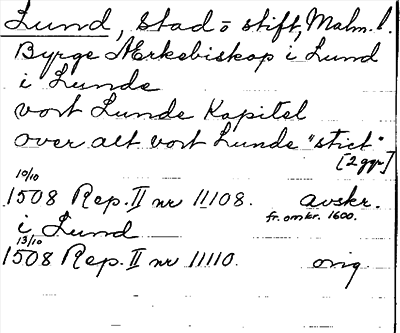 Lund, Stad o stift, Malm. l.
Byrge Ærkebiskop i Lund
i Lunde
vort Lunde Kapitel
over alt vort Lunde "stict"
[2 ggr]
10/10
1508 Rep. II nr 11108. avskr.
fr. omkr. 1600.
i Lund
13/10
1508 Rep. II nr 11110. orig